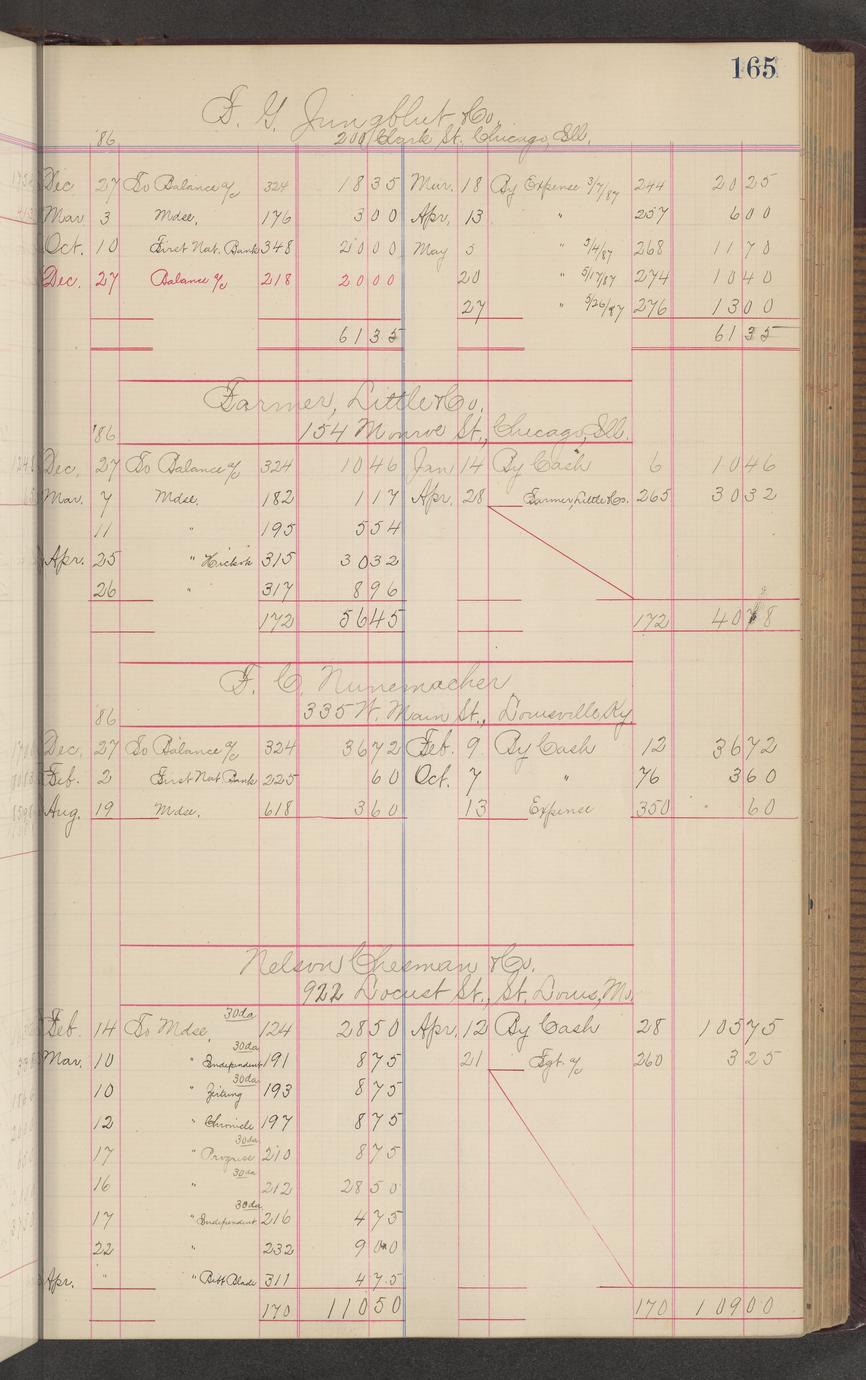 165
F. G. Jungblut & Co.
'86 200 Clark St. Chicago, Ill.
Dec 27 To Balance a/c 324 18 35 Mar. 18 By Expense 3/7/87 244 20 25
Mar 3 Mdse. 176 3 00 Apr. 13 " 257 6 00
Oct. 10 First Nat. Bank 348 20 00 May 5 " 5/4/87 268 11 70
Dec. 27 Balance a/c 218 20 00 20 " 5/17/87 274 10 40
27 " 5/26/87 276 13 00
61 35 61 35
Farmer, Little & Co.
'86 154 Monroe St., Chicago, Ill.
Dec. 27 To Balance a/c 324 10 46 Jan 14 By Cash 6 10 46
Mar. 7 Mdse. 182 1 17 Apr. 28 Farmer, Little & Co. 265 30 32
11 " 195 5 54
Apr. 25 " Hickok 315 30 32
26 " 317 8 96
172 56 45 172 40 78
F. C. Nunemacher
'86 335 W. Main St., Louisville, Ky.
Dec. 27 To Balance a/c 324 36 72 Feb. 9 By Cash 12 36 72
Feb. 2 First Nat Bank 225 60 Oct. 7 " 76 3 60
Aug. 19 Mdse. 618 3 60 13 Expense 350 60
Nelson Chesman & Co.
922 Locust St., St. Louis, Mo.
Feb. 14 To Mdse. 30da 124 28 50 Apr. 12 By Cash 28 105 75
Mar. 10 " Independent 30da 191 8 75 21 Fgt a/c 260 3 25
10 " Zeitung 30da 193 8 75
12 " Chronicle 197 8 75
17 " Progress 30da 210 8 75
16 " 30da 212 28 50
17 " Independent 30da 216 4 75
22 " 232 9 00
Apr. " " Blade 311 4 75
170 110 50 170 109 00